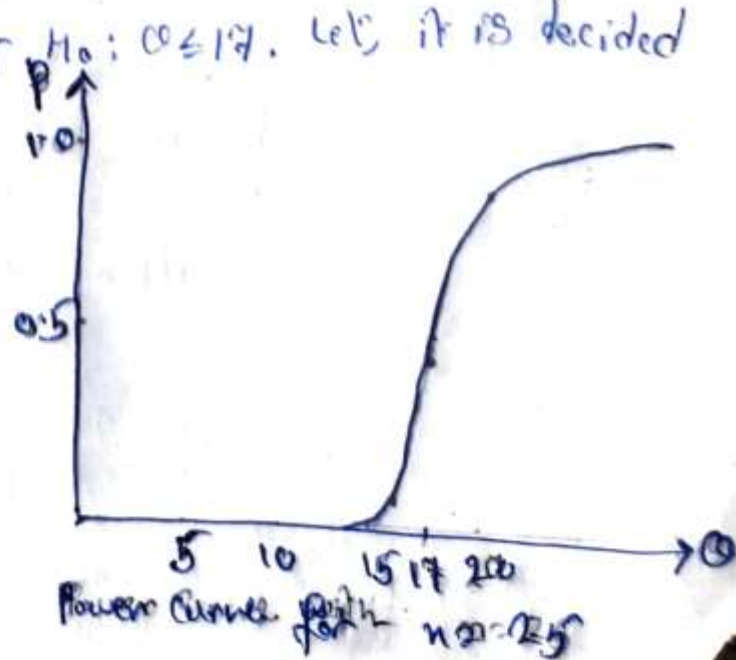 H₀: θ ≤ 17. Let, it is decided
P
1.0
0.5
5 10 15 17 20 θ
Power Curve for n = 25